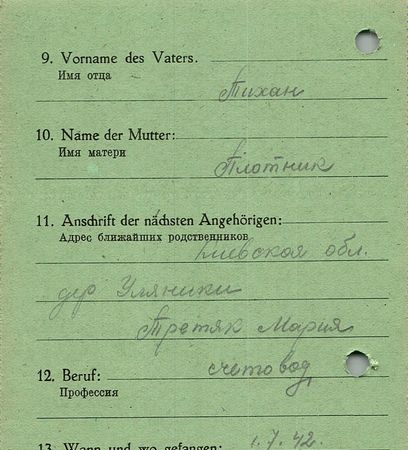 9. Vorname des Vaters.
Имя отца
Тихан
10. Name der Mutter:
Имя матери
Плотник
11. Anschrift der nächsten Angehörigen:
Адрес ближайших родственников
Киевская обл.
дер Уляники
Третяк Мария
счетовод
12. Beruf:
Профессия
13. Wann und wo gefangen: 1.7.42.